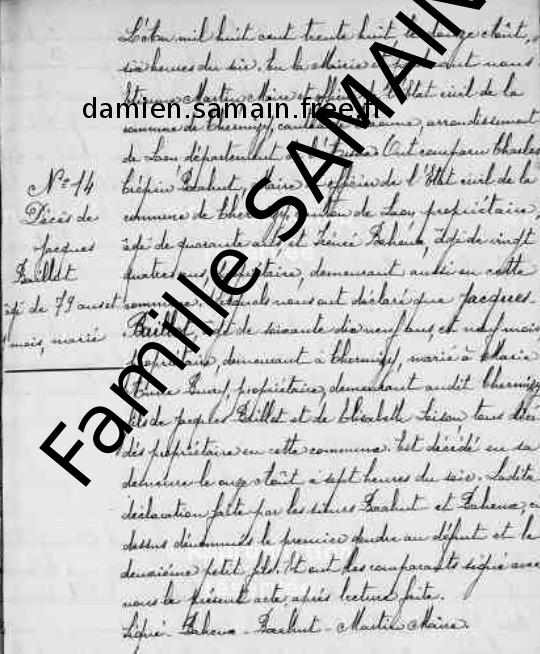 L'An mil huit cent trente huit le douze Août,
six heures du soir. En la Mairie et par devant nous
Martin Maire et officier de l'Etat civil de la
damien.samain.free.fr
commune de Chermizy, arrondissement
de Laon département de l'Aisne. Ont comparu Charles
Crépin Bachut, Maire et officier de l'Etat civil de la
commune de canton de Laon, propriétaire,
âgé de quarante ans et Baheux, âgé de vingt
quatre ans, propriétaire, demeurant aussi en cette
commune. Lesquels nous ont déclaré que Jacques
Baillet âgé de soixante dix neuf ans, et neuf mois,
propriétaire, demeurant à Chermizy, marié à Marie
propriétaire, demeurant audit Chermizy
fils de Jacques Baillet et de Elisabeth tous décé
dés propriétaire en cette commune. Est décédé en sa
demeure le onze Août à sept heures du soir. Ladite
déclaration faite par les sieurs Bachut et Baheux, ci
dessus dénommés le premier gendre au défunt et le
deuxième petit fils. Et ont les comparants signé avec
nous le présent acte, après lecture faite.
Signé. Baheux - Bachut - Martin Maire.
N° 14
Décès de
Jacques
Baillet
âgé de 79 ans et
mois, marié
Famille SAMAIN